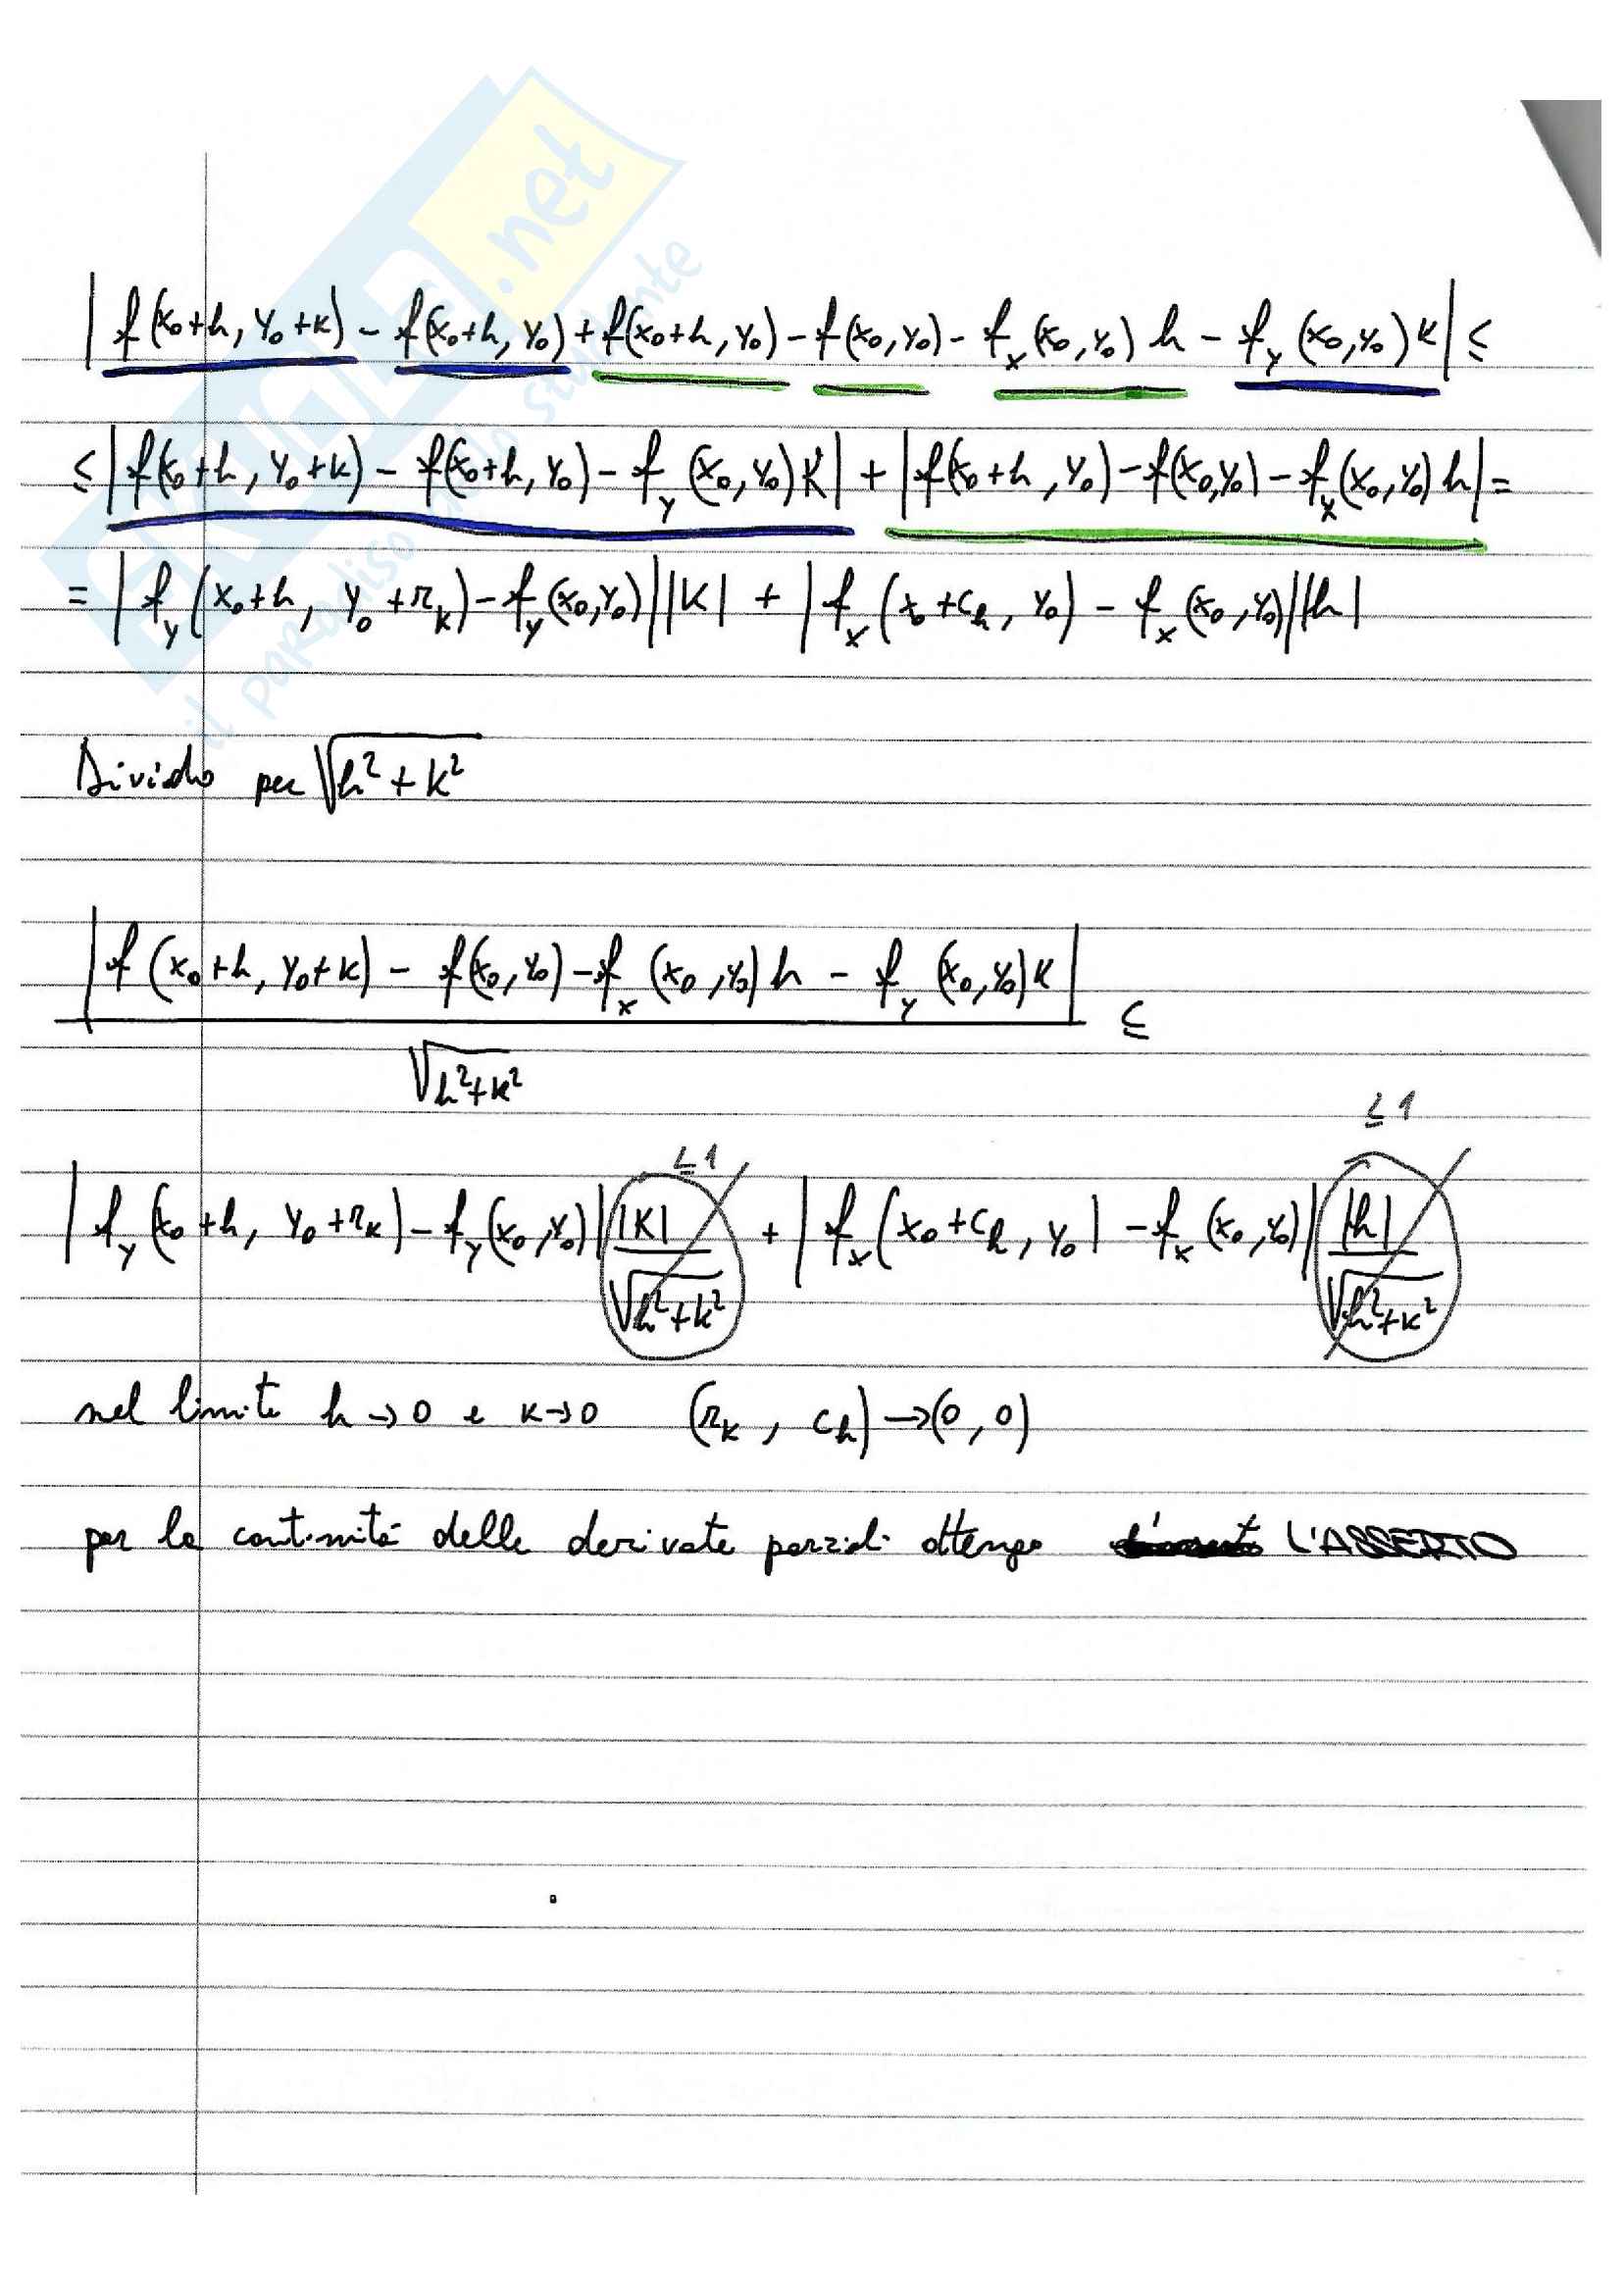 SKUOLA.net
il paradiso dello studente
|f(x₀+h, y₀+k) - f(x₀+h, y₀) + f(x₀+h, y₀) - f(x₀,y₀) - fₓ(x₀,y₀) h - f_y(x₀,y₀) k| ≤
≤ |f(x₀+h, y₀+k) - f(x₀+h, y₀) - f_y(x₀,y₀) k| + |f(x₀+h, y₀) - f(x₀,y₀) - fₓ(x₀,y₀) h| =
= |f_y(x₀+h, y₀+r_k) - f_y(x₀,y₀)||k| + |fₓ(x₀+c_h, y₀) - fₓ(x₀,y₀)||h|
Divido per √(h²+k²)
|f(x₀+h, y₀+k) - f(x₀,y₀) - fₓ(x₀,y₀) h - f_y(x₀,y₀) k| ≤
√(h²+k²)
≤1 ≤1
|f_y(x₀+h, y₀+r_k) - f_y(x₀,y₀)| |k|/√(h²+k²) + |fₓ(x₀+c_h, y₀) - fₓ(x₀,y₀)| |h|/√(h²+k²)
nel limite h→0 e k→0 (r_k, c_h)→(0,0)
per la continuità delle derivate parziali ottengo L'ASSERTO